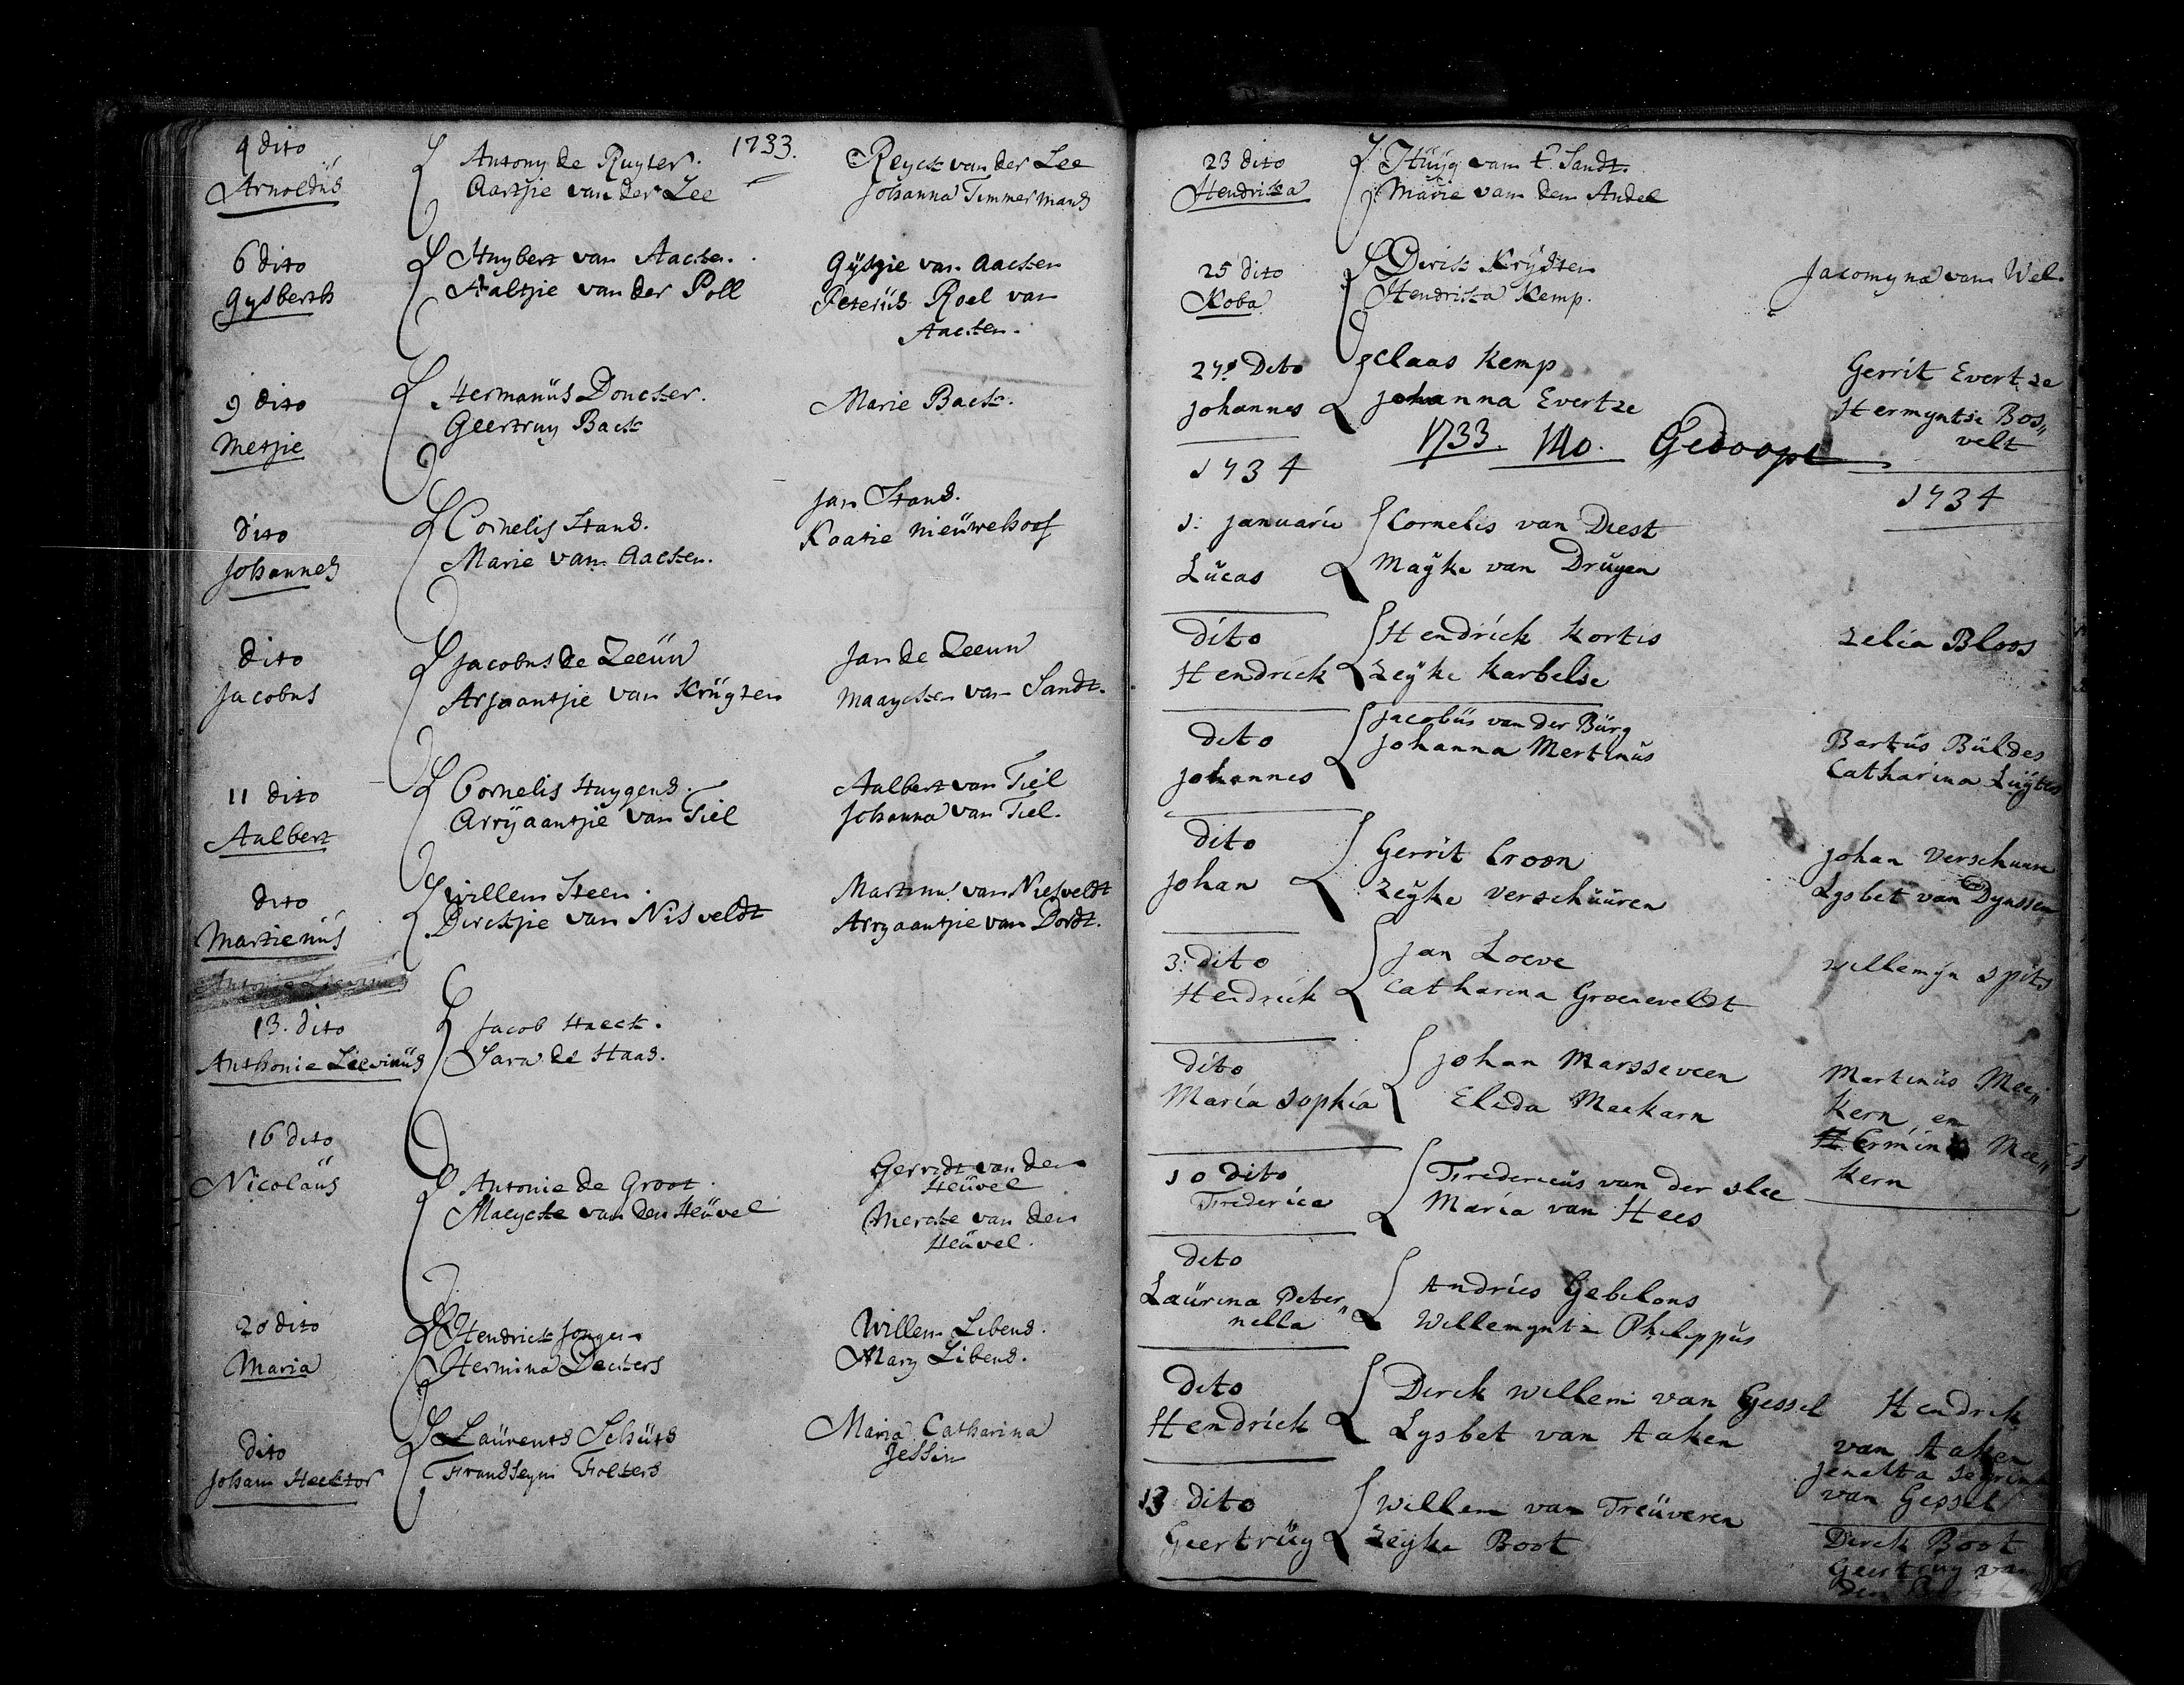 1733.
4 dito
Arnoldüs
Antony de Ruyter.
Aartjie van der Lee
Reyck van der Lee
Johanna Timmermans
6 dito
Gysberth
Huybert van Aacken.
Aaltjie van der Poll
Gijsgie van Aacken
Peterüs Roel van
Aacken.
9 dito
Metjie
Hermanüs Doncker.
Geertruy Back
Marie Back.
dito
Johannes
Cornelis Hans.
Marie van Aacken.
Jan Hans.
Kaatie nieüwehoof
dito
Jacobus
Jacobus de Zeeüw
Arjaantjie van Krügten
Jan de Zeeuw
Maaycken van Sandt.
11 dito
Aalbert
Cornelis Huygens.
Arrÿaantjie van Tiel
Aalbert van Tiel
Johanna van Tiel.
dito
Martienüs
Willem Steen.
Dircktjie van Nisveldt
Martinus van Nisveldt
Arryaantjie van Dordt.
Antonie Lievinus
13. dito
Anthonie Lievinüs
Jacob Haeck.
Sara de Haas.
16 dito
Nicolaüs
Antonie de Groot.
Maeycke van den Heüvel
Gerredt van den
Heüvel
Mercke van den
Heüvel.
20 dito
Maria
Hendrick Jongen
Hermina Deckers
Willem Libens.
Mary Libens.
dito
Johan Hecktor
Laürents Schüts
Frandseyn Folkers
Maria Catharina
Jessin
23 dito
Hendricka
Hüyg van t Sandt.
Marie van den Andel
25 dito
Koba
Dirck Krÿdten
Hendricka Kemp.
Jacomyna van Wel.
27 Dito
johannes
claas Kemp
johanna Evertze
Gerrit Evertze
Hermyntie Bos„
velt
1733. 140. Gedoopt
1734
1734
1: januarii
Lücas
Cornelis van Diest
Maÿke van Drüyen
dito
Hendrick
Hendrick Kortis
Zeÿke Karbelse
Zelia Bloos
dito
johannes
jacobüs van der Bürg
johanna Mertinüs
Bartüs Büldes
Catharina Lüÿtes
dito
johan
Gerrit Croon
Zeyke Verschüüren
johan Verschuure
Lysbet van Dynssen
3: dito
Hendrick
jan Loeve
Catharina Groeneveldt
Willemÿn Spits
dito
Maria Sophia
johan Marsseveen
Elida Meekarn
Martinüs Mee„
kern en
Hermina Mee„
kern
10 dito
Frederica
Fredericüs van der Slee
Maria van Hees
dito
Laürina Peter„
nella
Andries Gebelons
Willemyntie Philippüs
dito
Hendrick
Dirck Willem van Gessel
Lysbet van Aaken
Hendrik
van Aaken
van Gessel
13 dito
Geertrüy
Willem van Treüveren
Zeyke Boot
Dirck Boot
Geertruy van
den